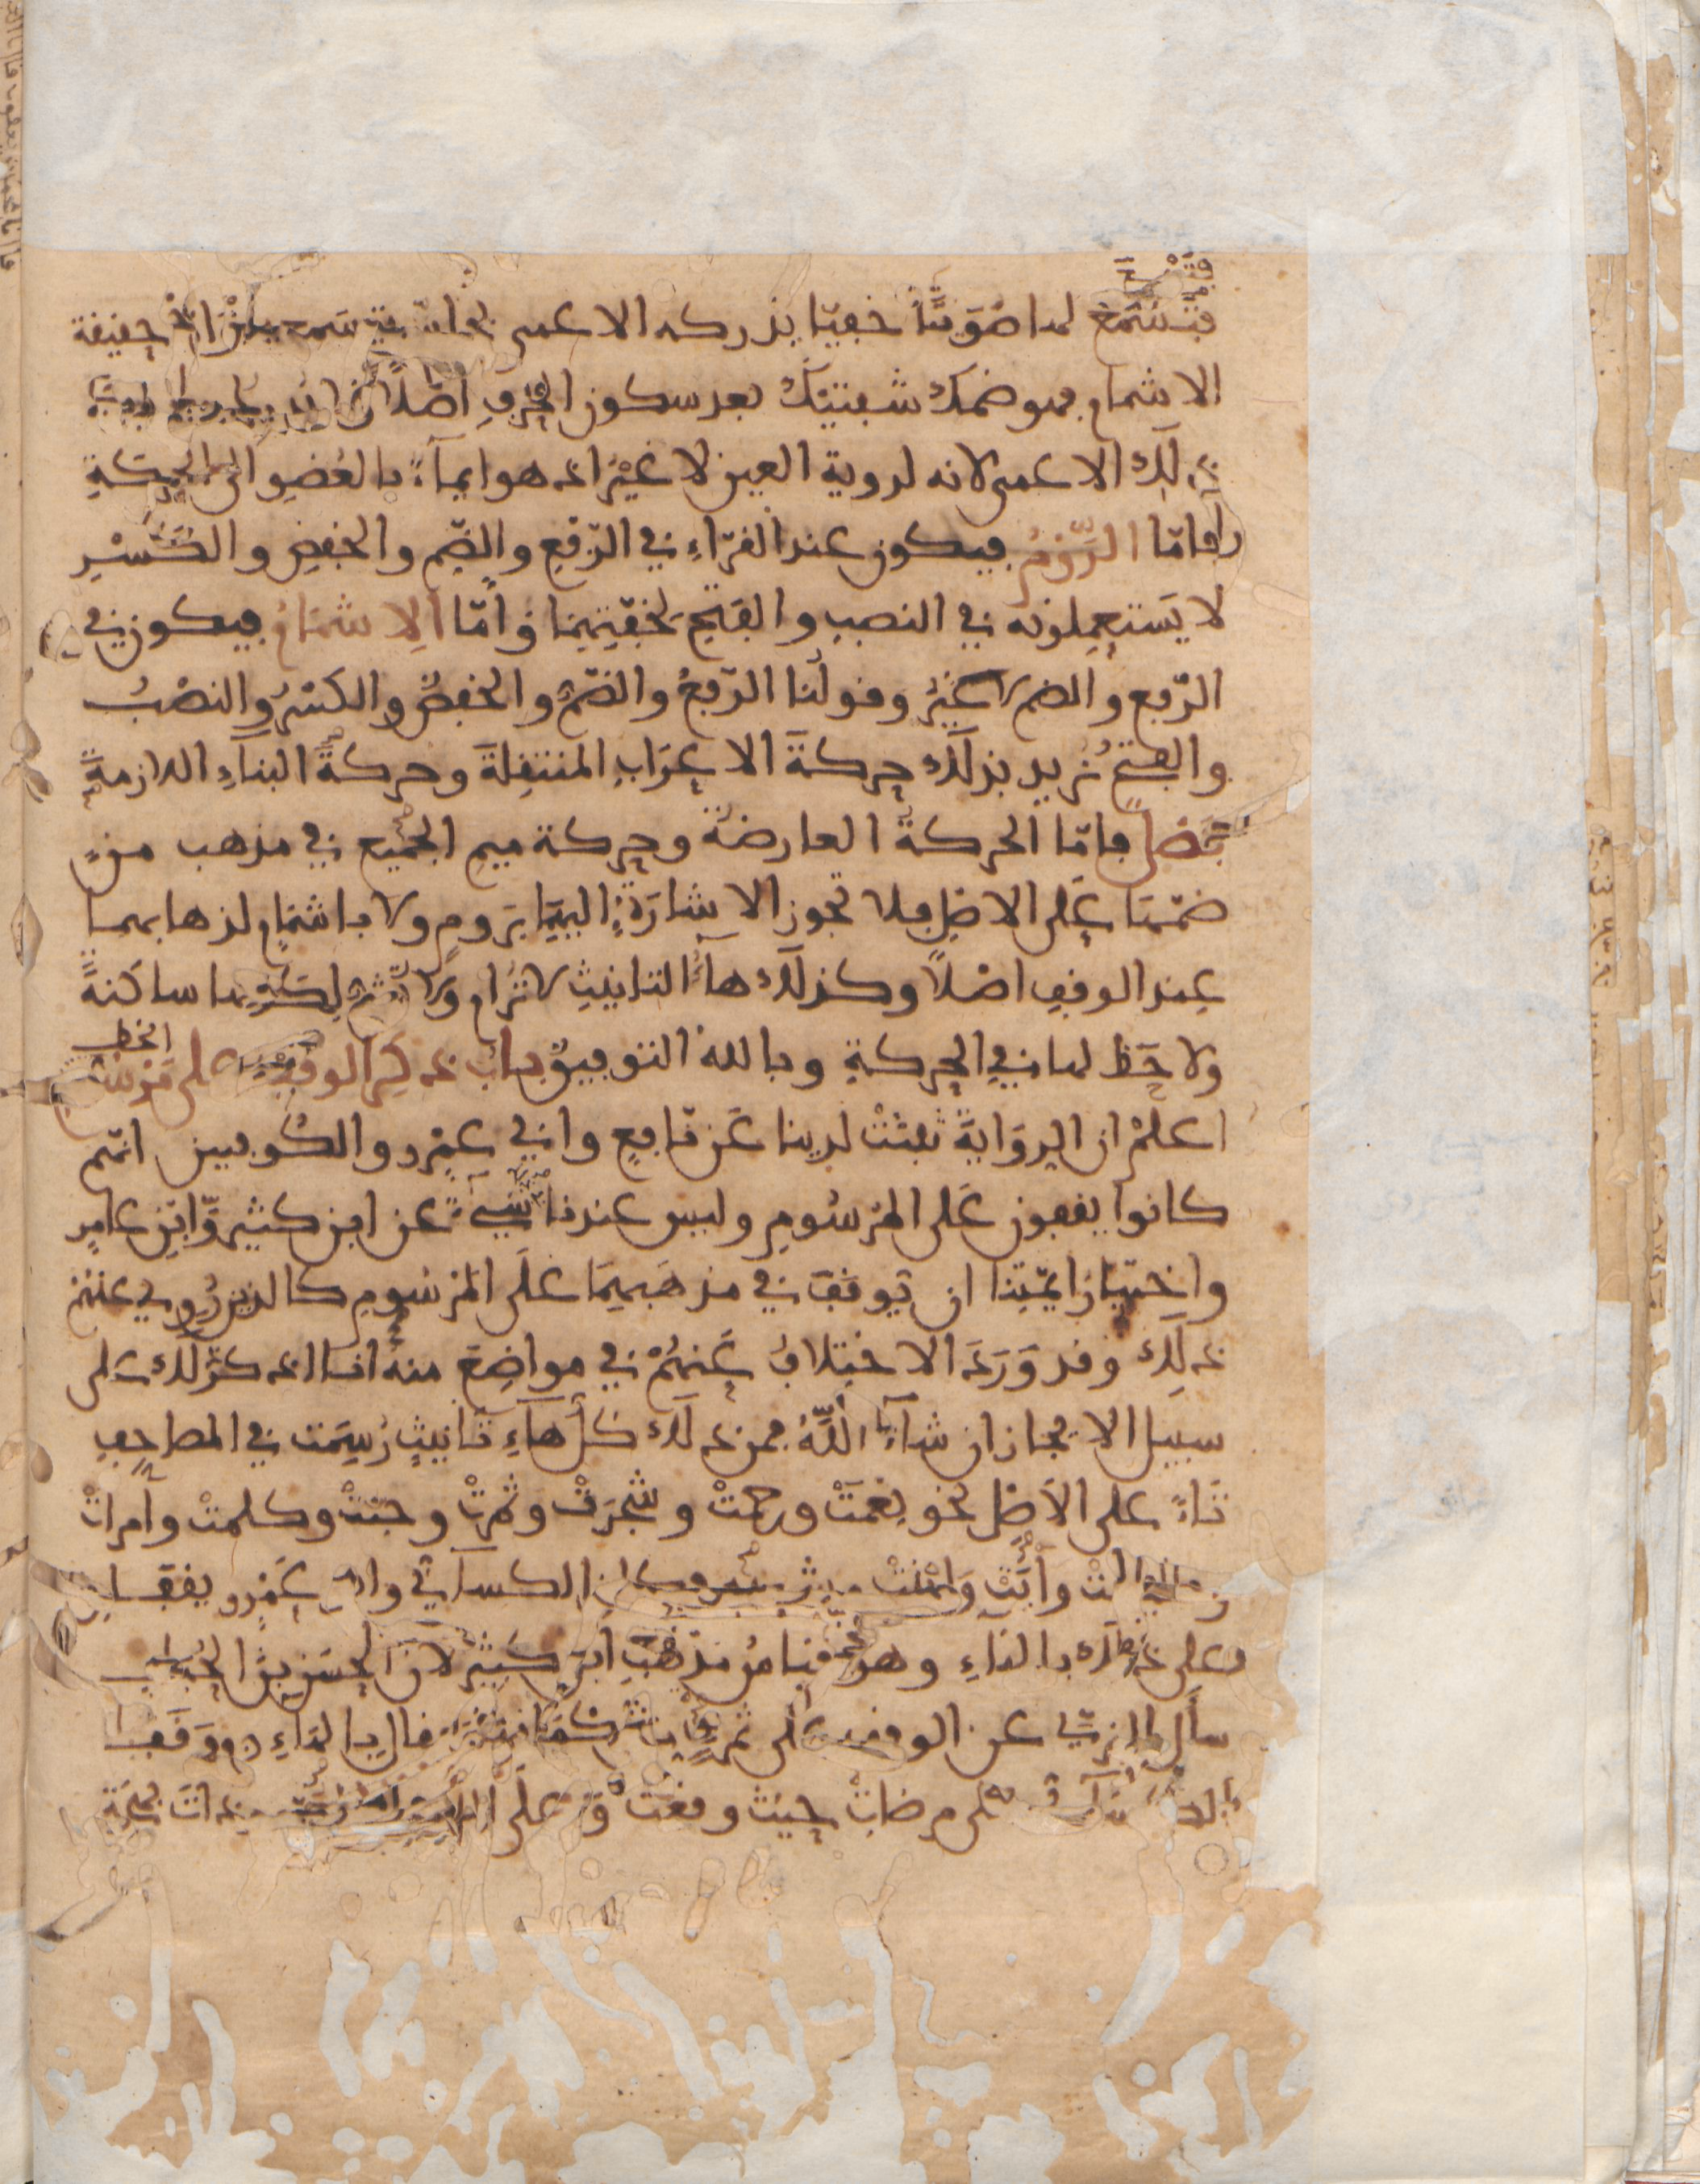 فتسمع لها صوتا خفيا يدركه الاعمى بحاسة سمعه حقيقة
الاشمام فهو ضمك شفتيك بعد سكون الحرف اصلا
ذلك الاعمى لانه لروية العين لا غير اذ هو ايماء بالعضو الى الحركة
فاما الروم فيكون عند القراء في الرفع والضم والخفض والكسر
لا يستعملونه في النصب والفتح لخفتهما واما الاشمام فيكون في
الرفع والضم لا غير وقولنا الرفع والضم والخفض والكسر والنصب
والفتح نريد بذلك حركة الاعراب المنتقلة وحركة البناء اللازمة
فاما الحركة العارضة وحركة ميم الجميع في مذهب من
ضمها على الاصل فلا تجوز الاشارة اليها بروم ولا باشمام لذهابهما
عند الوقف اصلا وكذلك هاء التانيث لا ترام ولا تشم لكونها ساكنة
ولا حظ لها في الحركة وبالله التوفيق باب ذكر الوقف على مرسوم الخط
اعلم ان الرواية ثبتت لدينا عن نافع وابي عمرو والكوفيين انهم
كانوا يقفون على المرسوم وليس عندنا شيء عن ابن كثير وابن عامر
واختيار ايمتنا ان يوقف في مذهبهما على المرسوم كالذين روي عنهم
ذلك وقد ورد الاختلاف عنهم في مواضع منه انا اذكر ذلك على
سبيل الايجاز ان شاء الله فمن ذلك كل هاء تانيث رسمت في المصاحف
تاء على الاصل نحو نعمت ورحمت وشجرت وثمرت وجنت وكلمت وامرات
وابنت الكسائي وابو عمرو يقفان
على ذلك بالهاء وهو قياس مذهب ابن كثير لان الحسن بن الحباب
سال البزي عن الوقف على ثمرت من اكمامها فقال بالهاء ووقف
الكسائي على مرضات حيث وقعت وعلى ذات بهجة